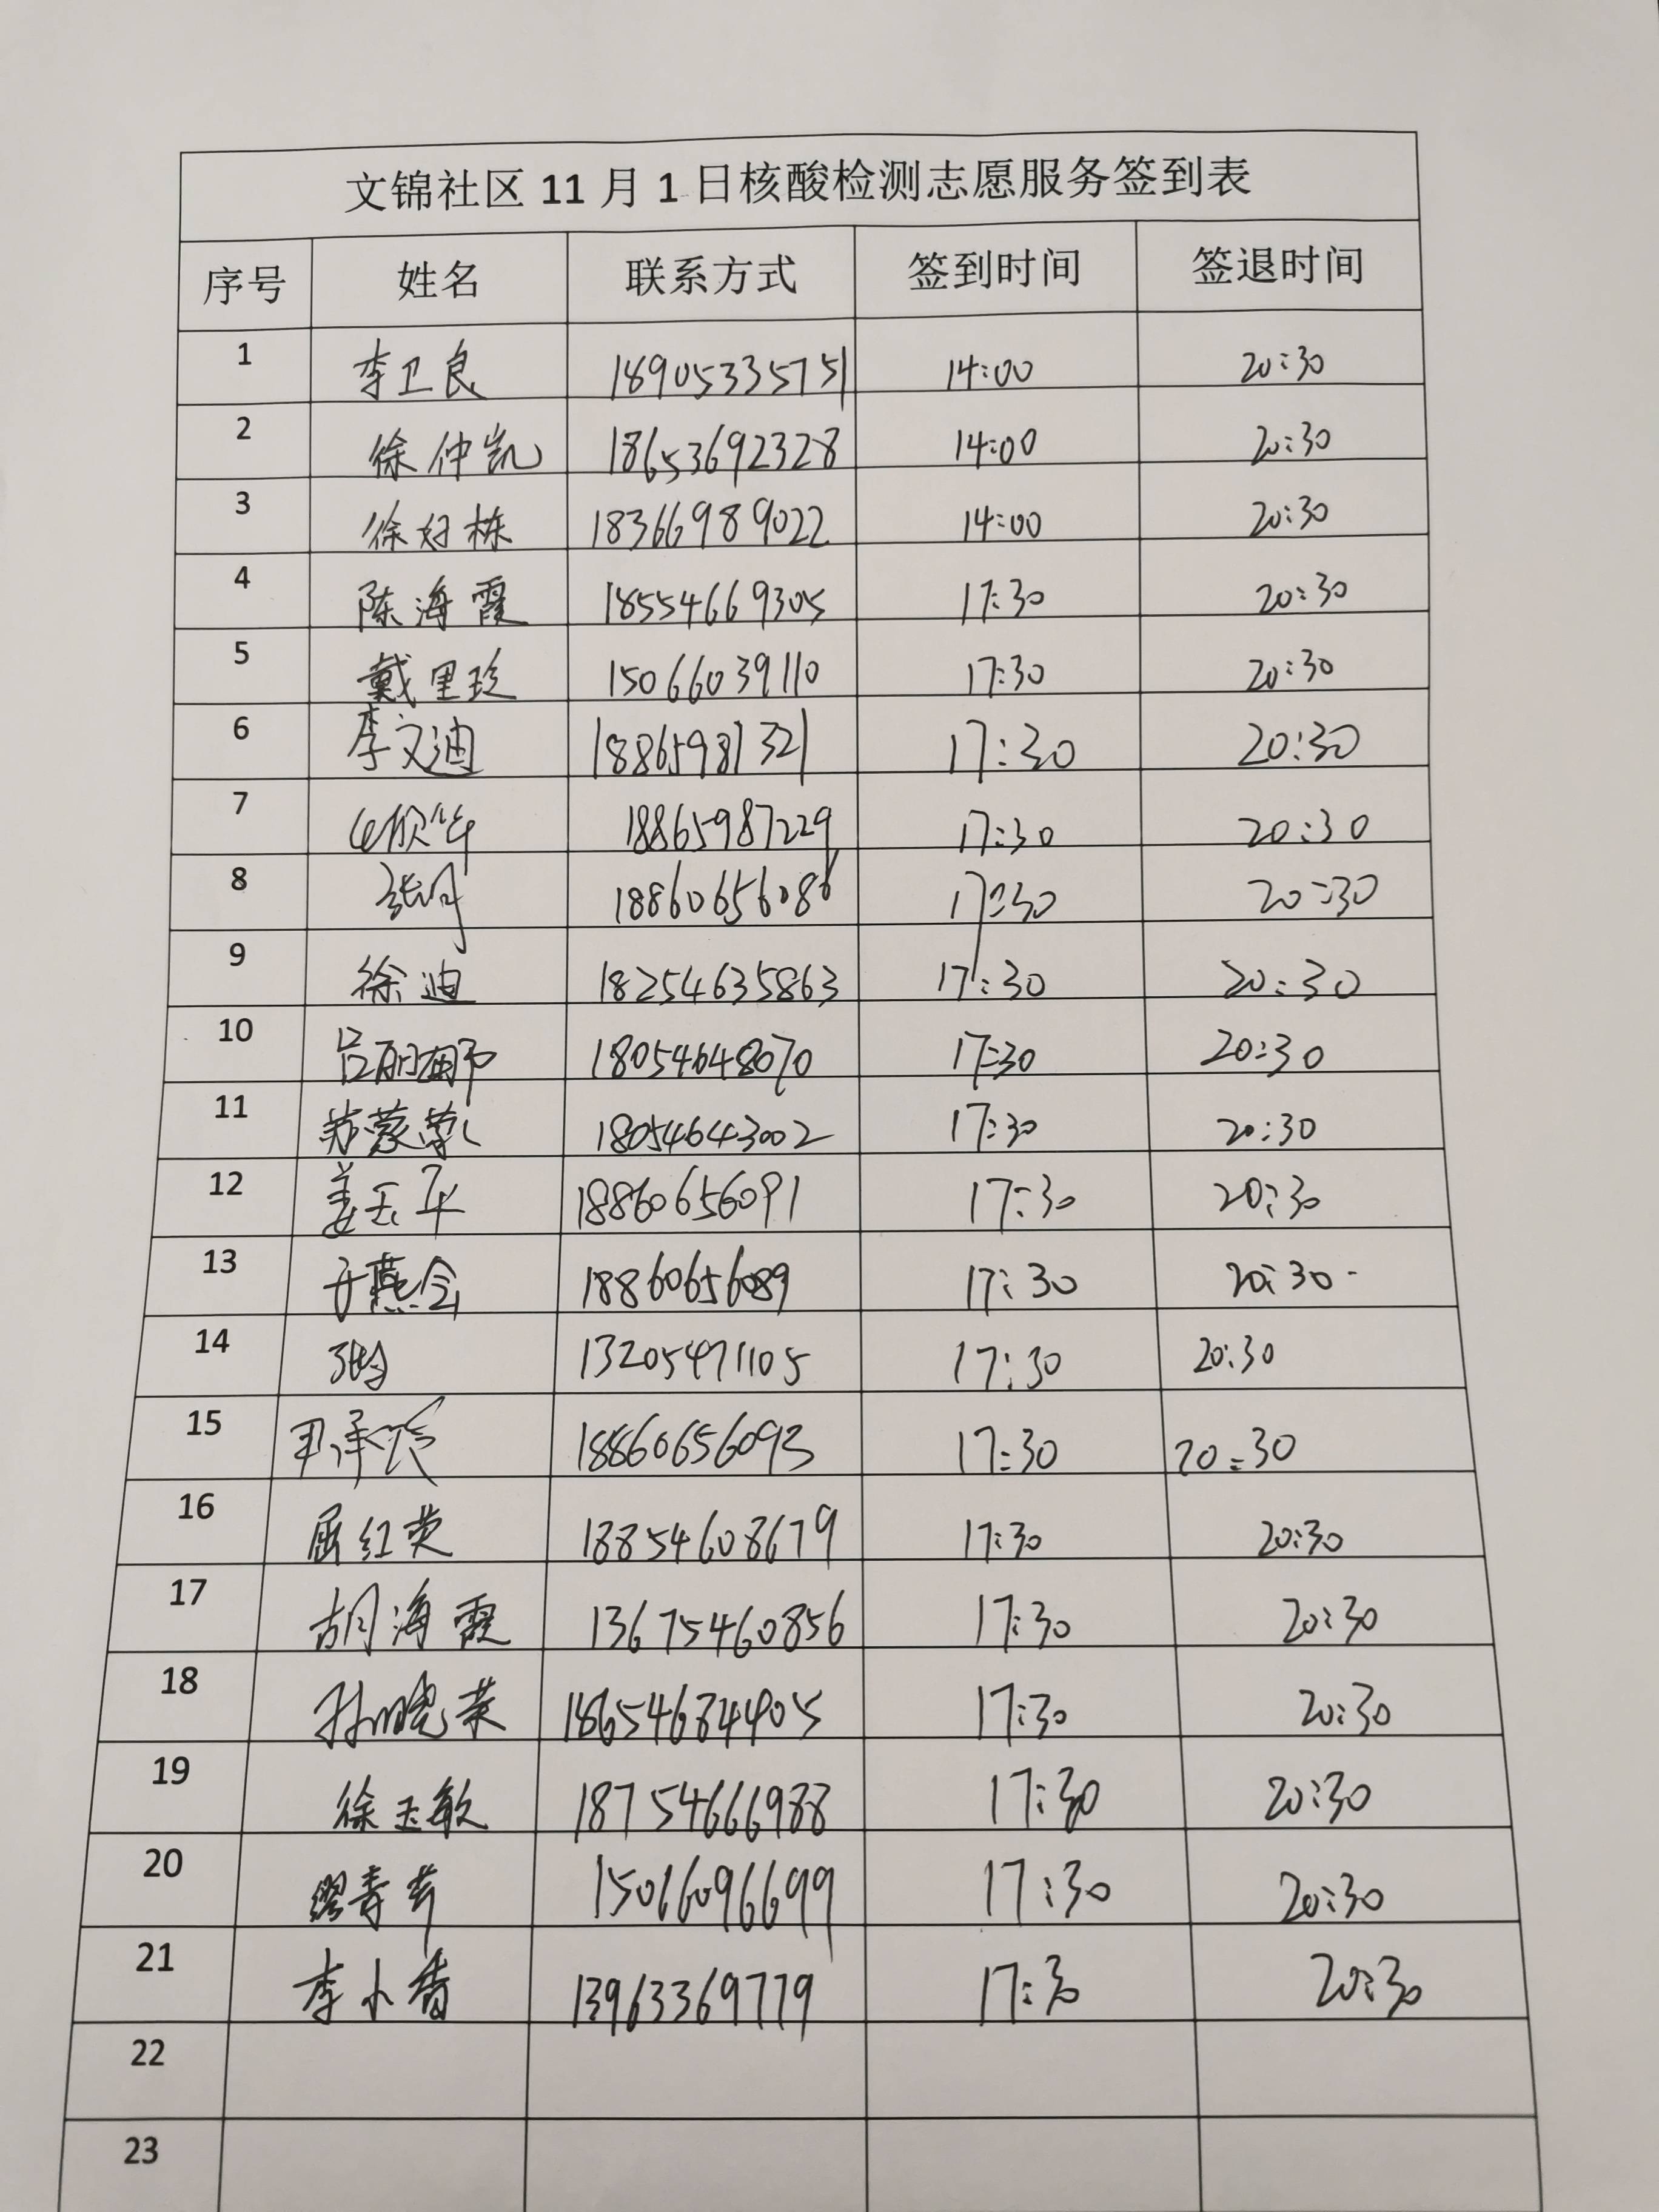 文锦社区 11 月 1 日核酸检测志愿服务签到表
序号 姓名 联系方式 签到时间 签退时间
1 李卫良 18905335751 14:00 20:30
2 徐仲凯 18653692328 14:00 20:30
3 徐好栋 18366989022 14:00 20:30
4 陈海霞 18554669305 17:30 20:30
5 戴里珍 15066039110 17:30 20:30
6 李文迪 18865981321 17:30 20:30
7 18865987229 17:30 20:30
8 18860656086 17:30 20:30
9 徐迪 18254635863 17:30 20:30
10 吕丽娜 18054648070 17:30 20:30
11 苏蒙蒙 18054643002 17:30 20:30
12 姜玉平 18860656091 17:30 20:30
13 于燕会 18860656089 17:30 20:30
14 13205471105 17:30 20:30
15 18860656093 17:30 20:30
16 屈红英 18854608679 17:30 20:30
17 胡海霞 13675460856 17:30 20:30
18 孙晓荣 18654684905 17:30 20:30
19 徐玉敏 18754666988 17:30 20:30
20 缪寿芹 15066096699 17:30 20:30
21 李小香 13963369779 17:30 20:30
22
23